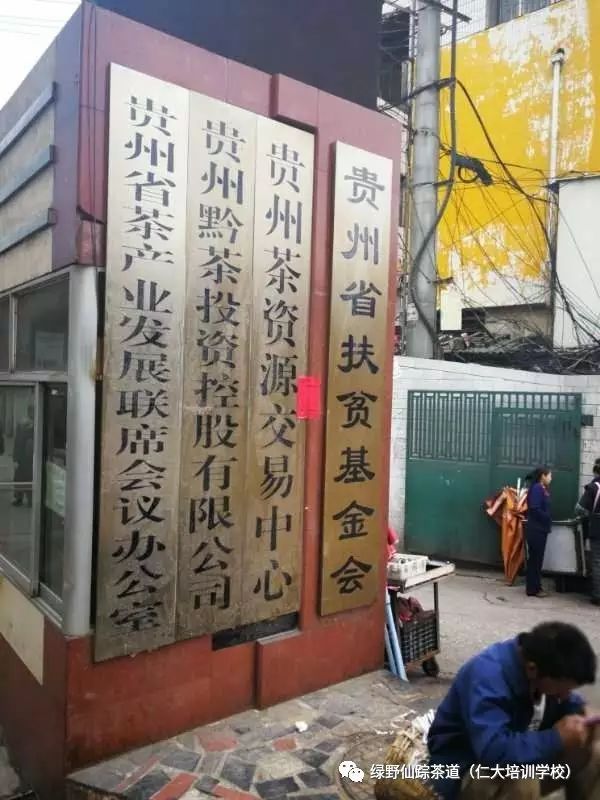 贵州省茶产业发展联席会议办公室
贵州黔茶投资控股有限公司
贵州茶资源交易中心
贵州省扶贫基金会
绿野仙踪茶道（仁大培训学校）